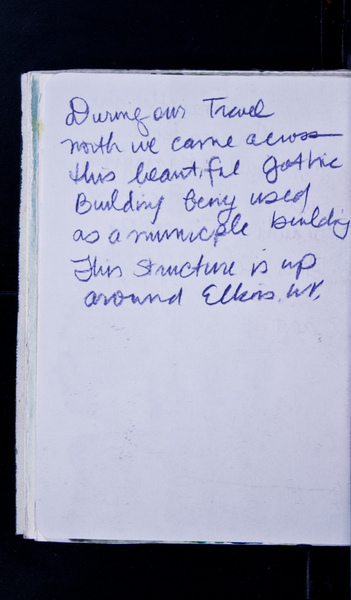 During our Travel
north we came across
this beautiful Gothic
Building being used
as a municple building
This structure is up
around Elkins. WV.